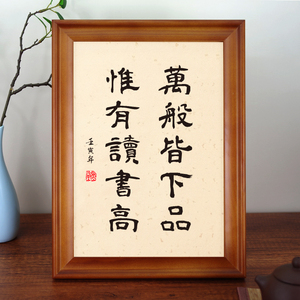 萬般皆下品
惟有讀書高
壬寅年